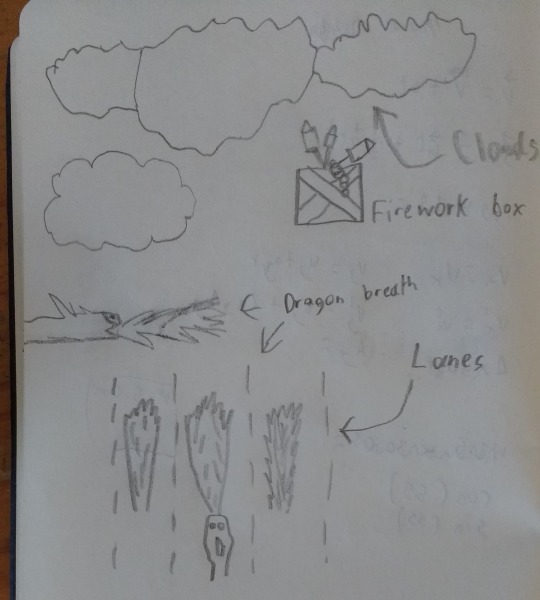 Clouds
Firework box
Dragon breath
Lanes